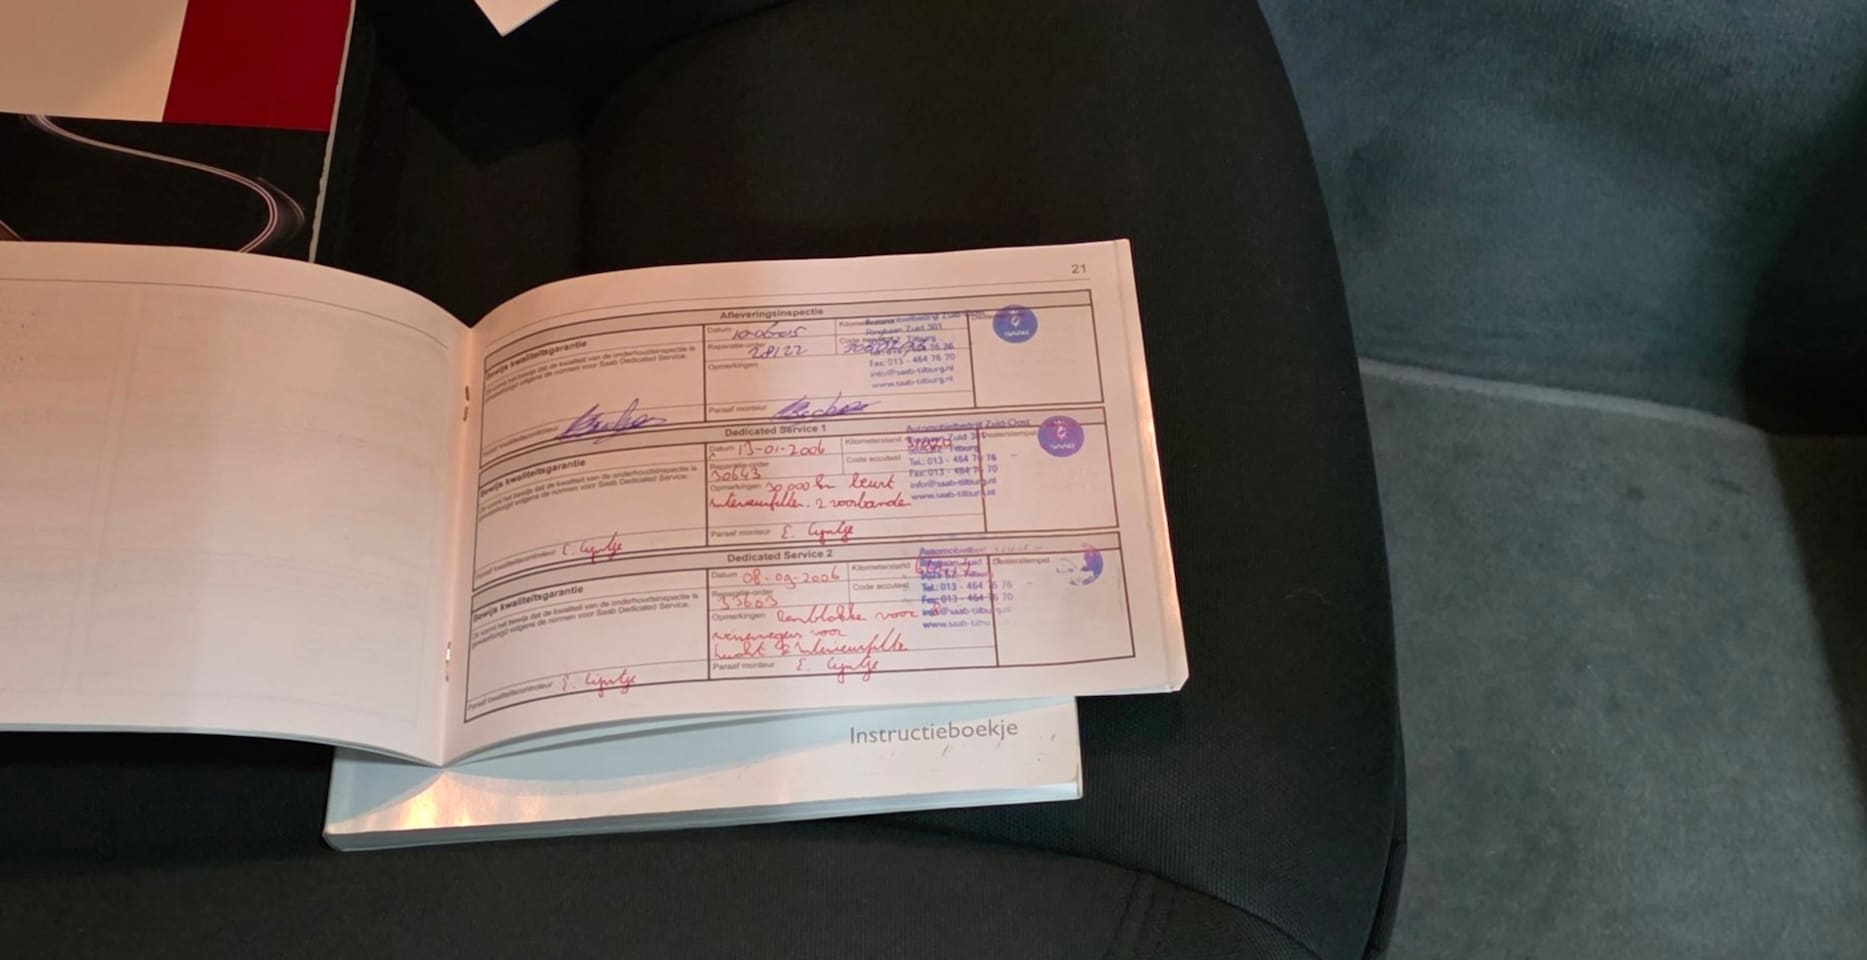 21
Afleveringsinspectie
Bewijs kwaliteitsgarantie
Dit vormt het bewijs dat de kwaliteit van de onderhoudsinspectie is
gewaarborgd volgens de normen voor Saab Dedicated Service.
Datum
Reparatie-order 28122
Opmerkingen
Ringbaan Zuid 301
Fax: 013 - 464 76 70
info@saab-tilburg.nl
www.saab-tilburg.nl
Paraaf kwaliteitscontroleur
Paraaf monteur
Dedicated Service 1
Bewijs kwaliteitsgarantie
Dit vormt het bewijs dat de kwaliteit van de onderhoudsinspectie is
gewaarborgd volgens de normen voor Saab Dedicated Service.
Datum 13-01-2006
Kilometerstand
Dealerstempel
Reparatie-order 30643
Code acculaat
Opmerkingen 30.000 km beurt
Interieurfilter. 2 voorbanden
Automobielbedrijf Zuid-Oost
Tel.: 013 - 464 76 76
Fax: 013 - 464 76 70
info@saab-tilburg.nl
www.saab-tilburg.nl
Paraaf kwaliteitscontroleur
Paraaf monteur
Dedicated Service 2
Bewijs kwaliteitsgarantie
Dit vormt het bewijs dat de kwaliteit van de onderhoudsinspectie is
gewaarborgd volgens de normen voor Saab Dedicated Service.
Datum 08-09-2006
Kilometerstand
Dealerstempel
Reparatie-order 33603
Code acculaat
Opmerkingen Remblokken voor
voor
Interieurfilter
Tel.: 013 - 464 76 76
Fax: 013 - 464 76 70
info@saab-tilburg.nl
Paraaf kwaliteitscontroleur
Paraaf monteur
Instructieboekje